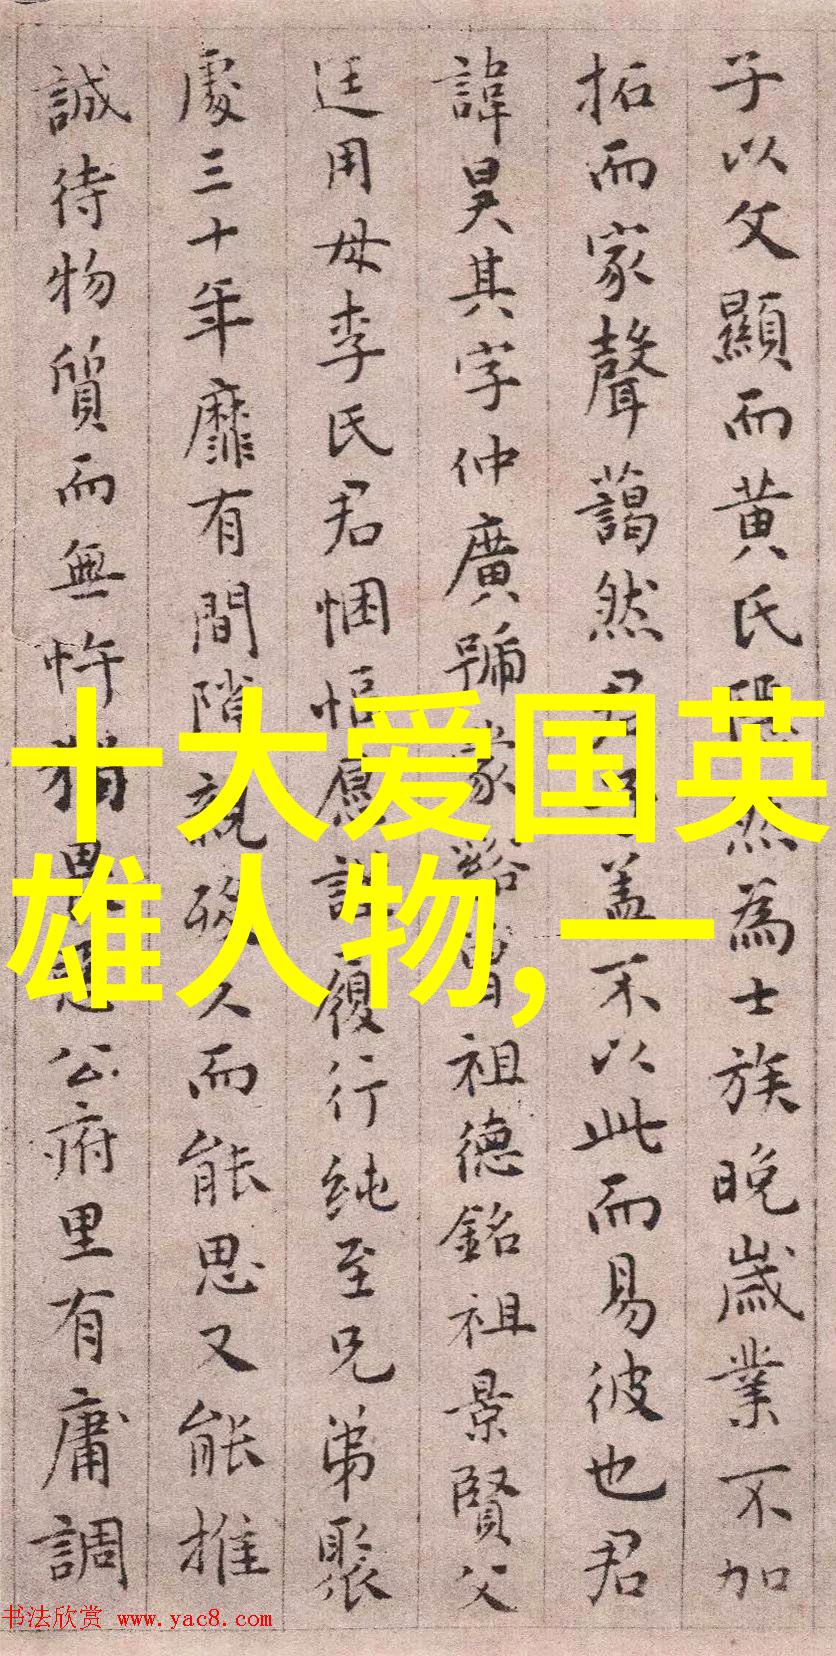 子以父顯而黄氏隠然為士族晚歲業不加
拓而家聲藹然君子蓋不以此而易彼也君
諱昊其字仲廣號蒙谿曾祖德銘祖景賢父
廷用母李氏君悃愊愿詖履行纯至兄弟聚
處三十年靡有間隙親歿久而能思又能推
誠待物質而無忤猶思公府里有庸調
十大爱国英
雄人物,一
书法欣赏 www.yac8.com